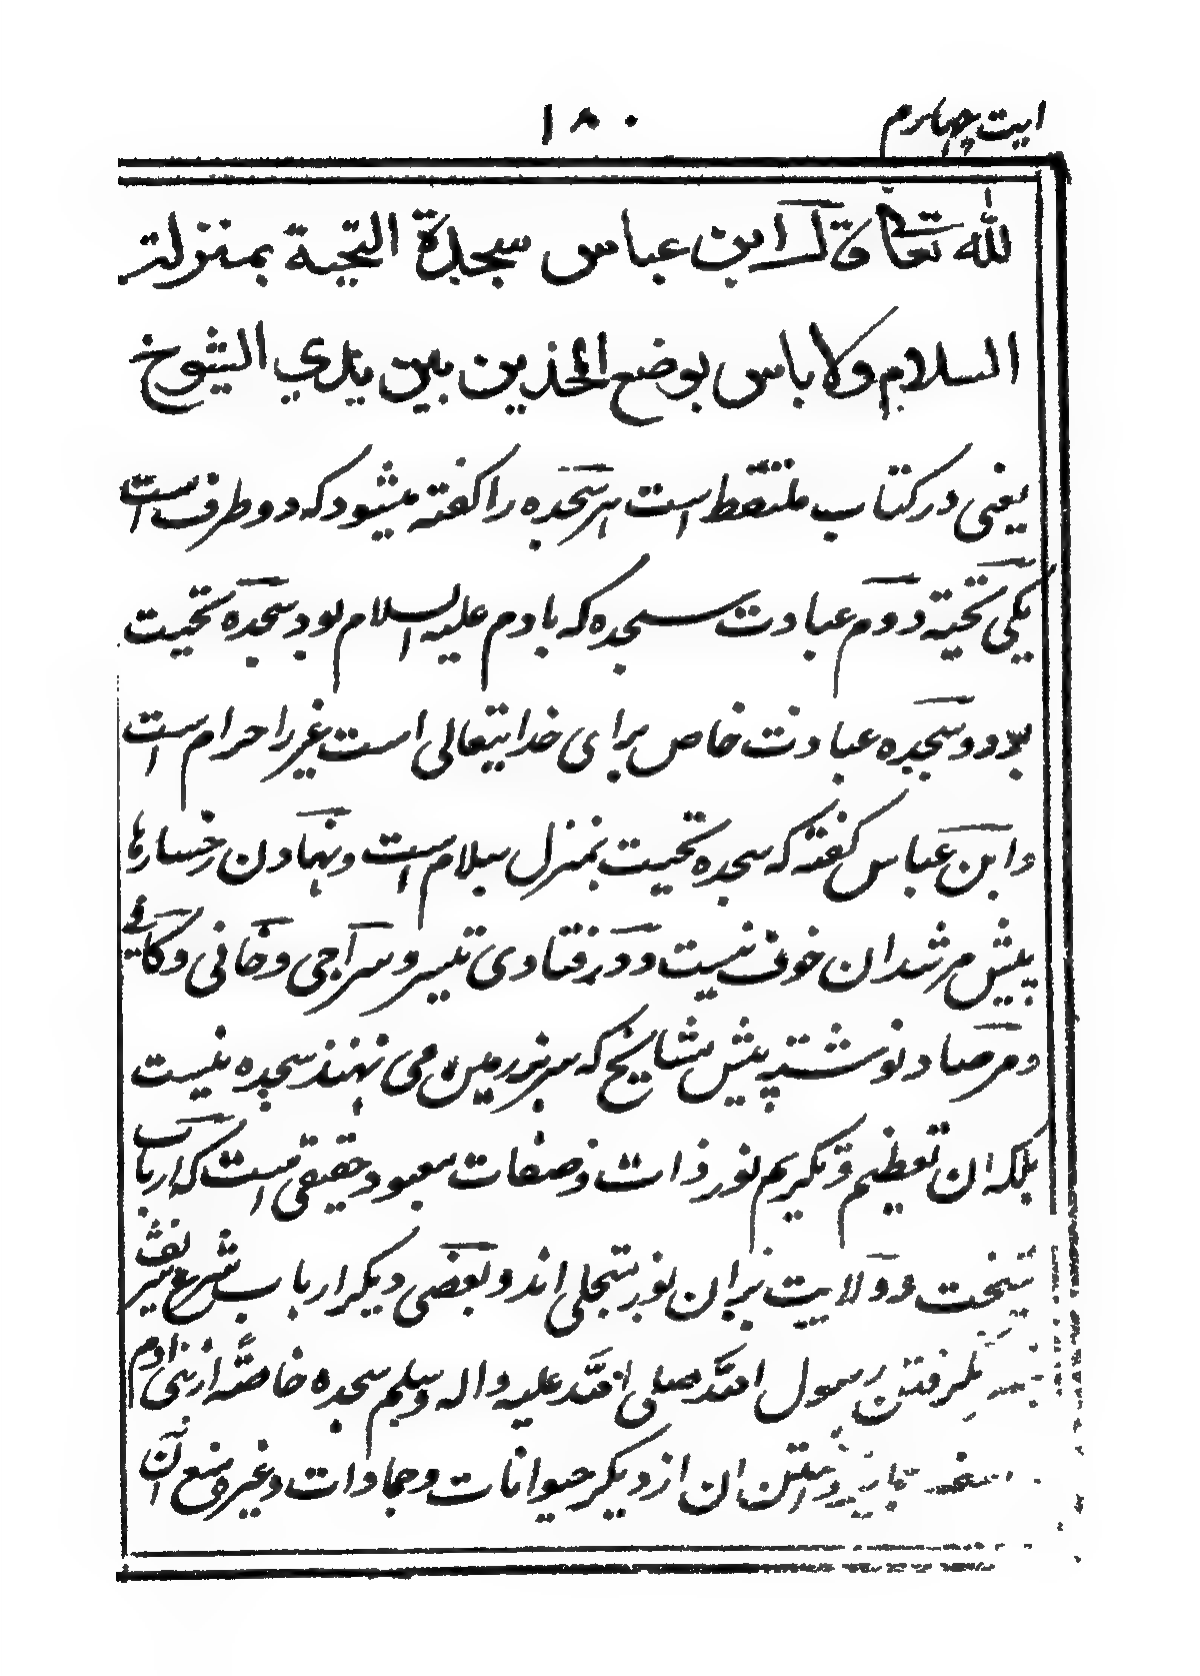 ایت چهارم ۱۸۰
لله تعالی قال ابن عباس سجدة التحیة بمنزلة
السلام ولا باس بوضع الخدین بین یدي الشیوخ
یعنی در کتاب ملتقط است هر سجده را کفته میشود که دو طرف است
یکی تحیة دوم عبادت سجده که بادم علیه السلام بود سجده تحیت
بود و سجده عبادت خاص برای خدایتعالی است غیر را حرام است
وابن عباس کفته که سجده تحیت بمنزل سلام است ونهادن رخسارها
پیش مرشدان خوف نیست ودر فتادی تیسر وسراجی وخانی وکافی
ومرصاد نوشته پیش مشایخ که سر بزرمین می نهند سجده نیست
بلکه ان تعظیم وتکریم نور ذات وصفات معبود حقیقی است که ارباب
شیخت وولایت بران نور متجلی اند وبعضی دیکر ارباب شرع شریف
رسول الله صلی الله علیه واله وسلم سجده خاصّه از بنی ادم
ان از دیکر حیوانات وجمادات وغیر ومنع ان